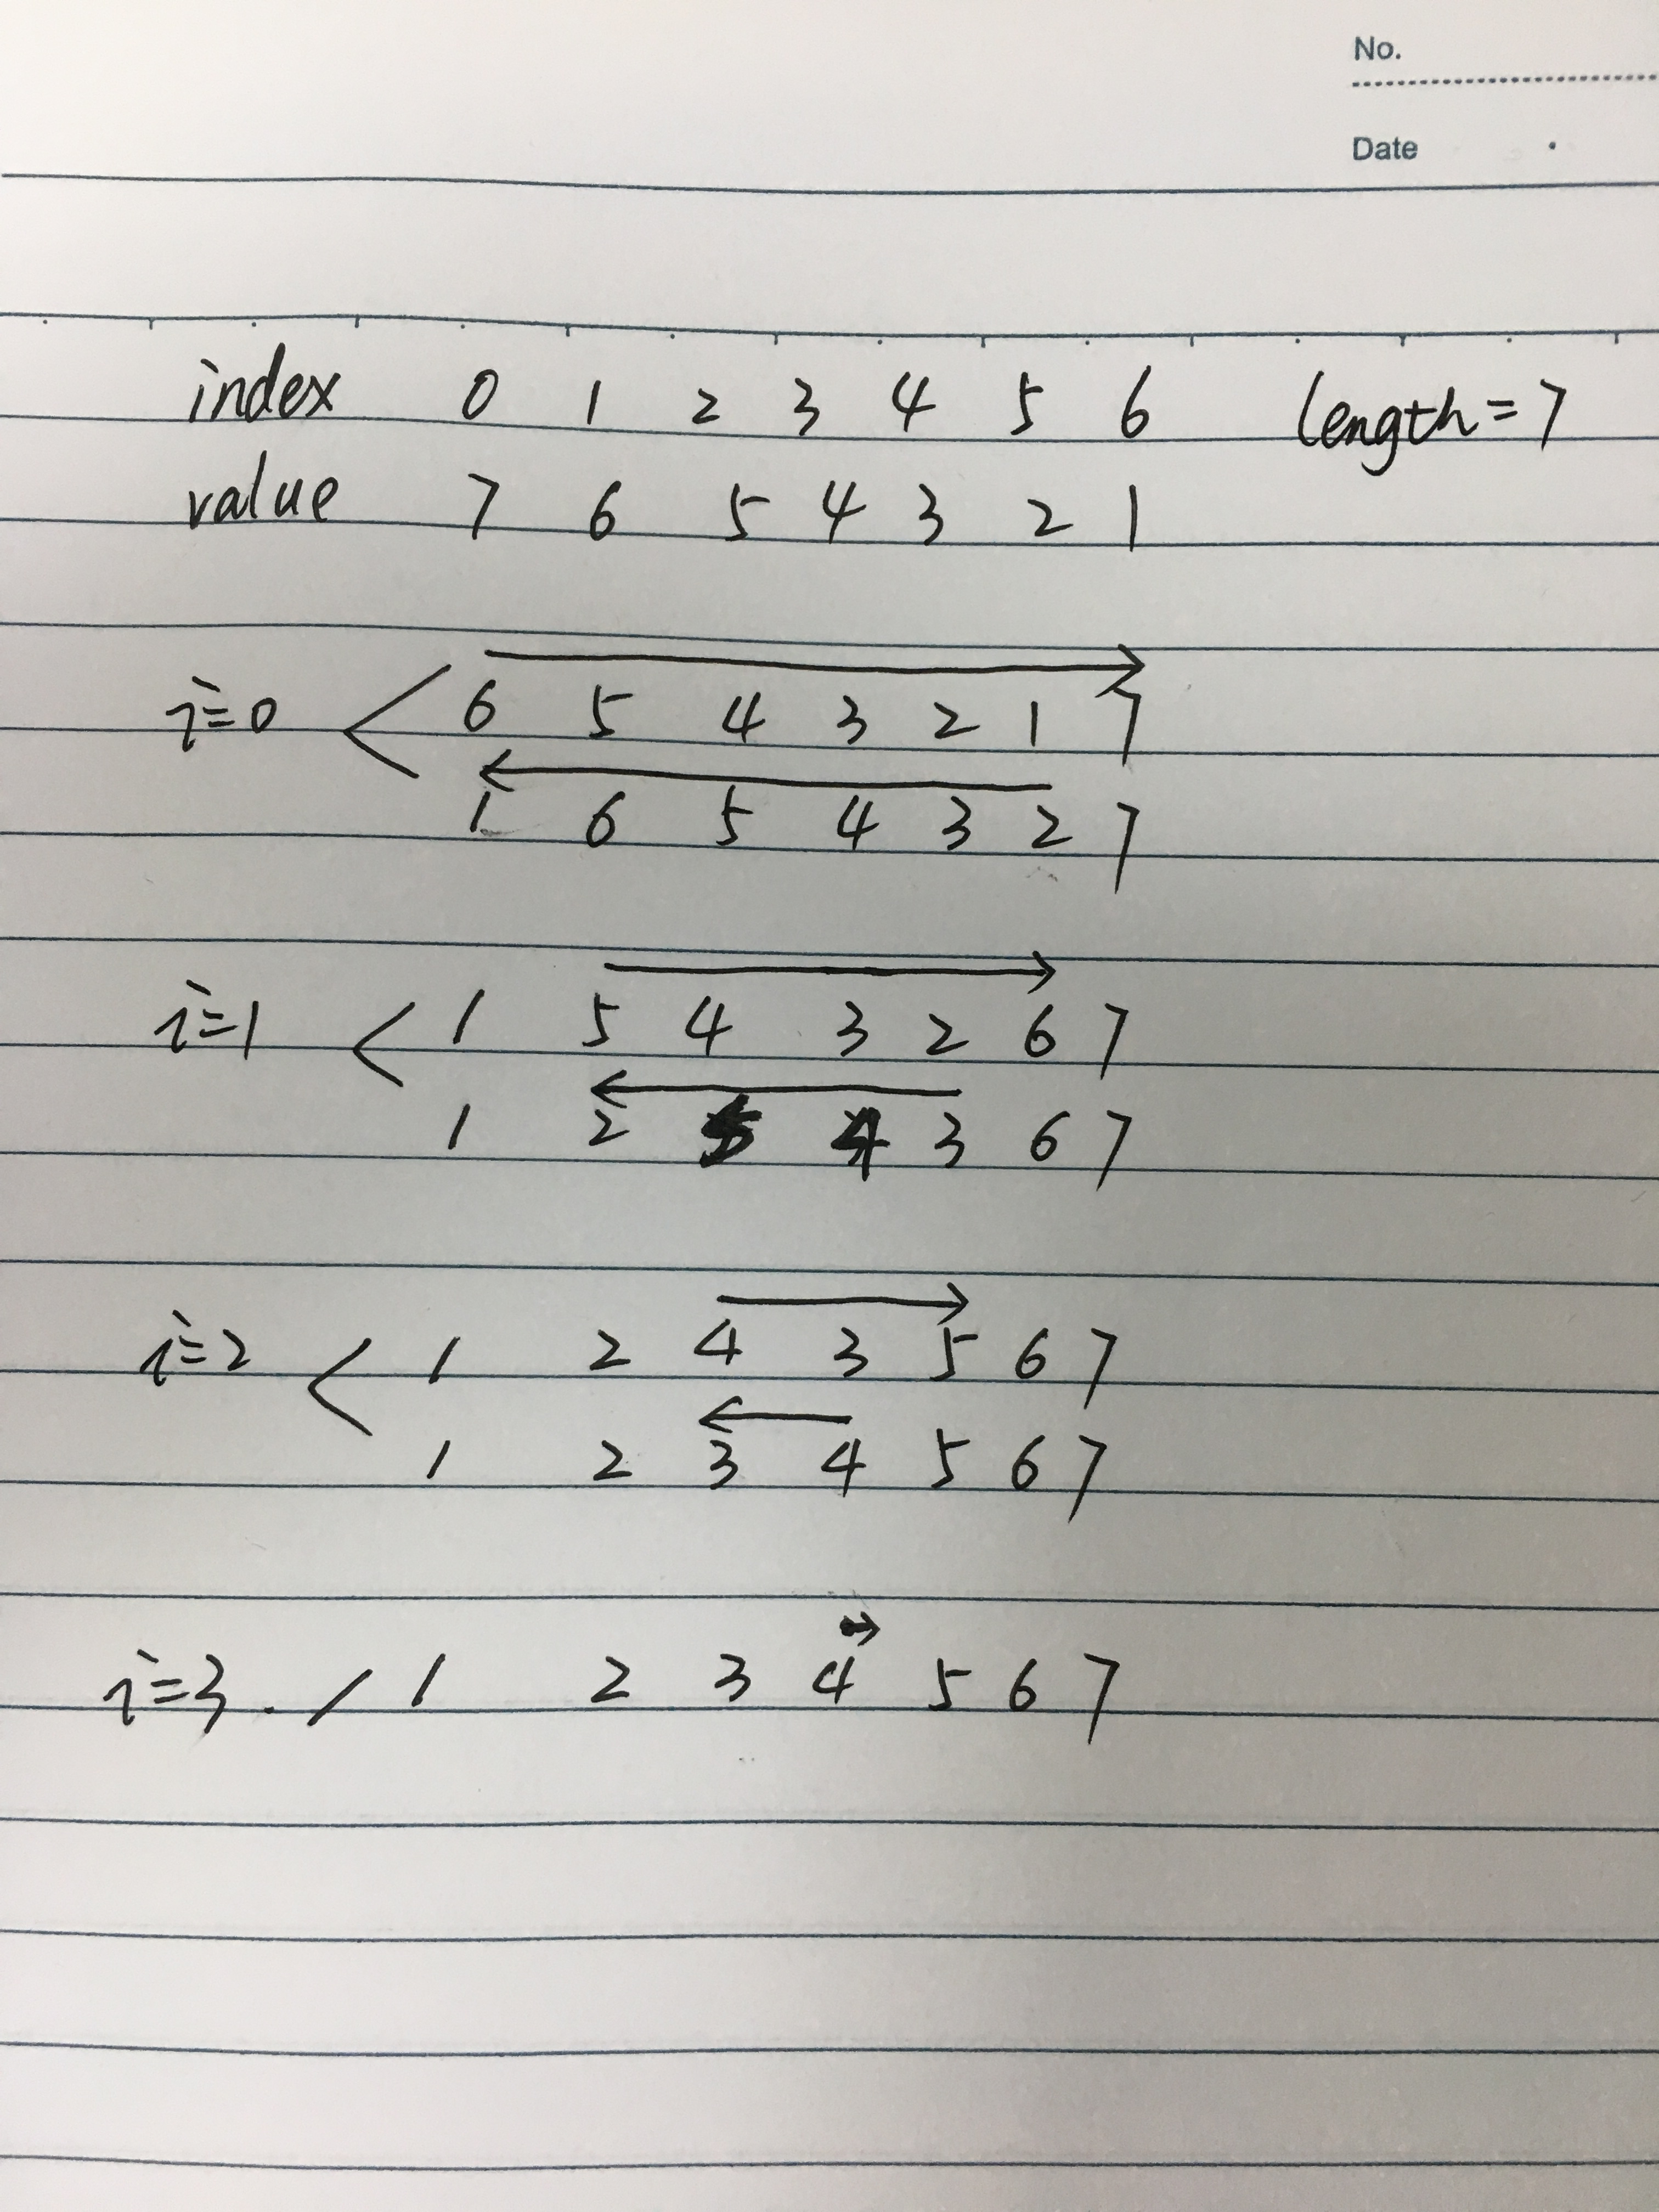 No.
Date
index 0 1 2 3 4 5 6 length=7
value 7 6 5 4 3 2 1
i=0 < 6 5 4 3 2 1 7
1 6 5 4 3 2 7
i=1 < 1 5 4 3 2 6 7
1 2 5 4 3 6 7
i=2 < 1 2 4 3 5 6 7
1 2 3 4 5 6 7
i=3. / 1 2 3 4 5 6 7